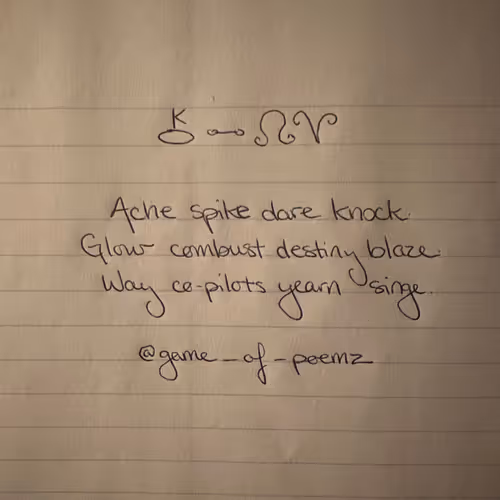 ⚷ ⚯ ♌ ♈
Ache spike dare knock.
Glow combust destiny blaze.
Way co-pilots yearn singe.
@game_of_poemz